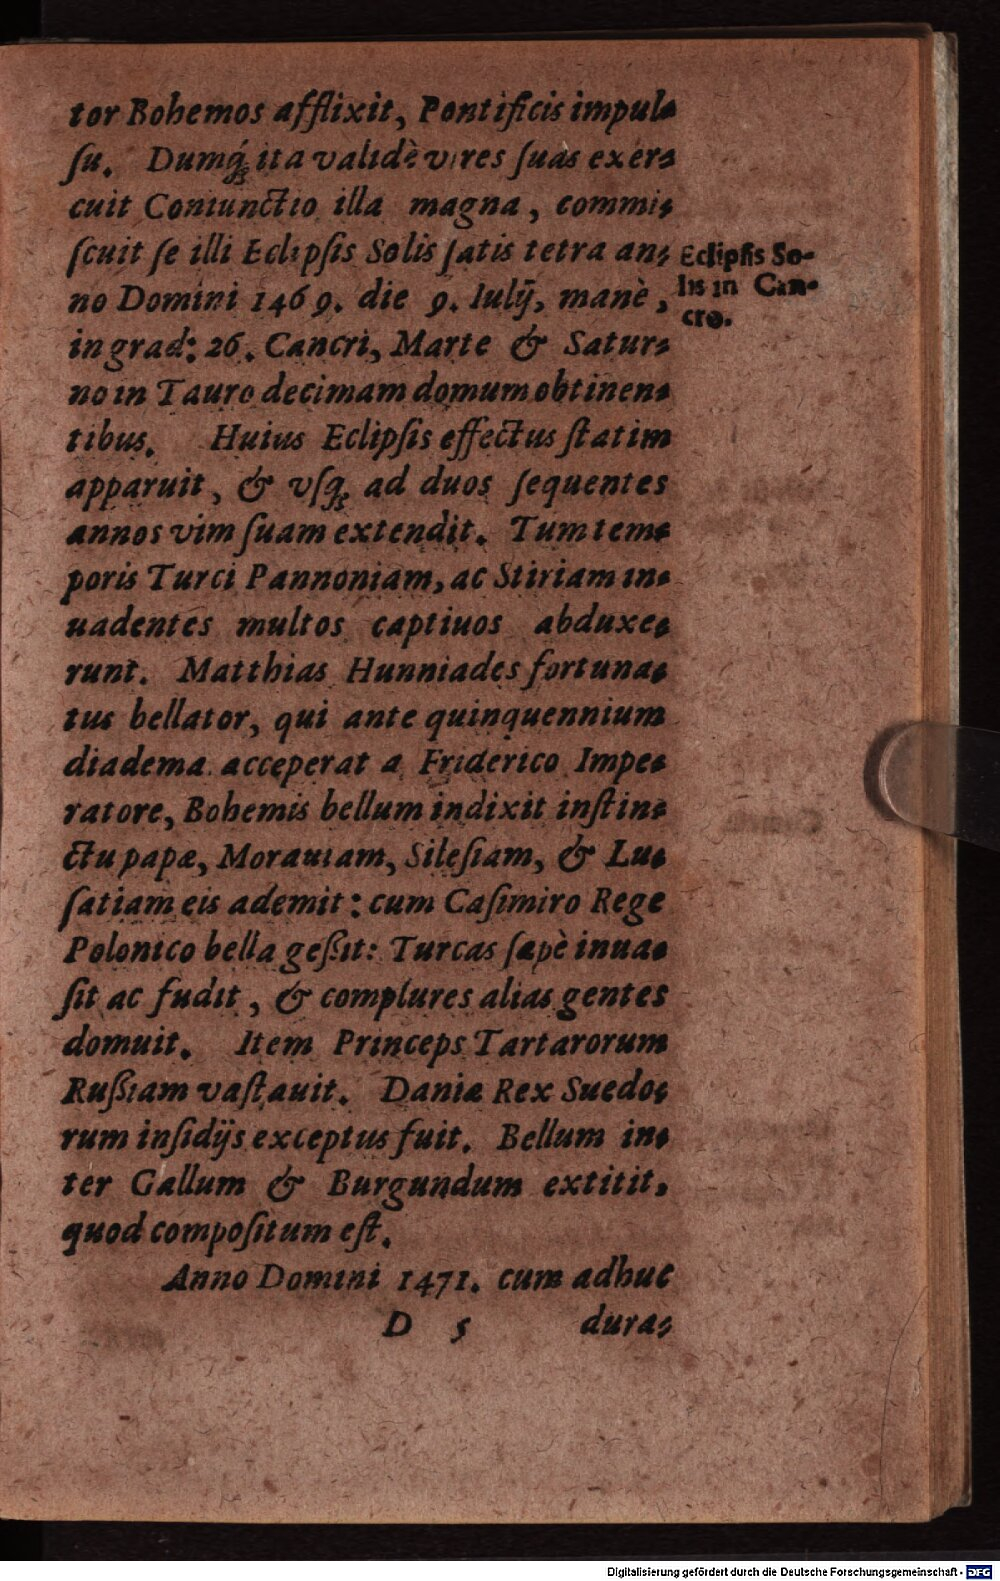 tor Bohemos afflixit, Pontificis impul-
ſu. Dumq́; ita validè vires ſuas exer-
cuit Coniunctio illa magna, commi-
ſcuit ſe illi Eclipſis Solis ſatis tetra an-
no Domini 1469. die 9. Iulij, manè,
in grad: 26. Cancri, Marte & Satur-
no in Tauro decimam domum obtinen-
tibus. Huius Eclipſis effectus ſtatim
apparuit, & vſq; ad duos ſequentes
annos vim ſuam extendit. Tum tem-
poris Turci Pannoniam, ac Stiriam in-
uadentes multos captiuos abduxe-
runt. Matthias Hunniades fortuna-
tus bellator, qui ante quinquennium
diadema acceperat a Friderico Impe-
ratore, Bohemis bellum indixit inſtin-
ctu papæ, Morauiam, Sileſiam, & Lu-
ſatiam eis ademit: cum Caſimiro Rege
Polonico bella geßit: Turcas ſæpè inua-
ſit ac fudit, & complures alias gentes
domuit. Item Princeps Tartarorum
Rußiam vaſtauit. Daniæ Rex Suedo-
rum inſidijs exceptus fuit. Bellum in-
ter Gallum & Burgundum extitit,
quod compoſitum eſt.
Anno Domini 1471. cum adhuc
D 5 dura-
Eclipſis So-
lis in Can-
cro.
Digitalisierung gefördert durch die Deutsche Forschungsgemeinschaft - DFG